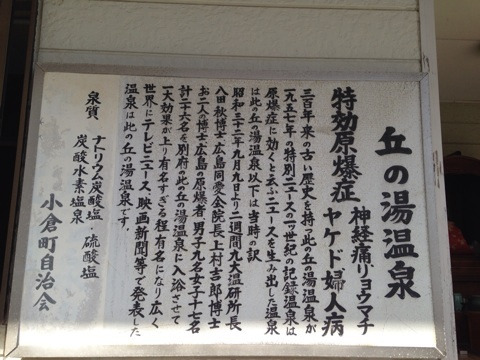 丘の湯温泉
特効原爆症 神経痛リョウマチ
ヤケド婦人病
三百年来の古い歴史を持つ此の丘の湯温泉が
一九五七年の特別ニュースの一ツ世紀の記録温泉は
原爆症に効くと云ふニュースを生み出した温泉
は此の丘の湯温泉以下は当時の訳
昭和三十二年九月九日より二週間九大温研所長
八田秋博士広島同愛会院長上村吉郎博士
お二人の博士広島の原爆者男子九名女子十七名
計二十六名を別府の此の丘の湯温泉に入浴させて
一大効果が上り有名すぎる程有名になり広く
世界にテレビニュース、映画、新聞等で発表した
温泉は此の丘の湯温泉です。
泉質 ナトリウム炭酸塩・硫酸塩
炭酸水素塩泉
小倉町自治会